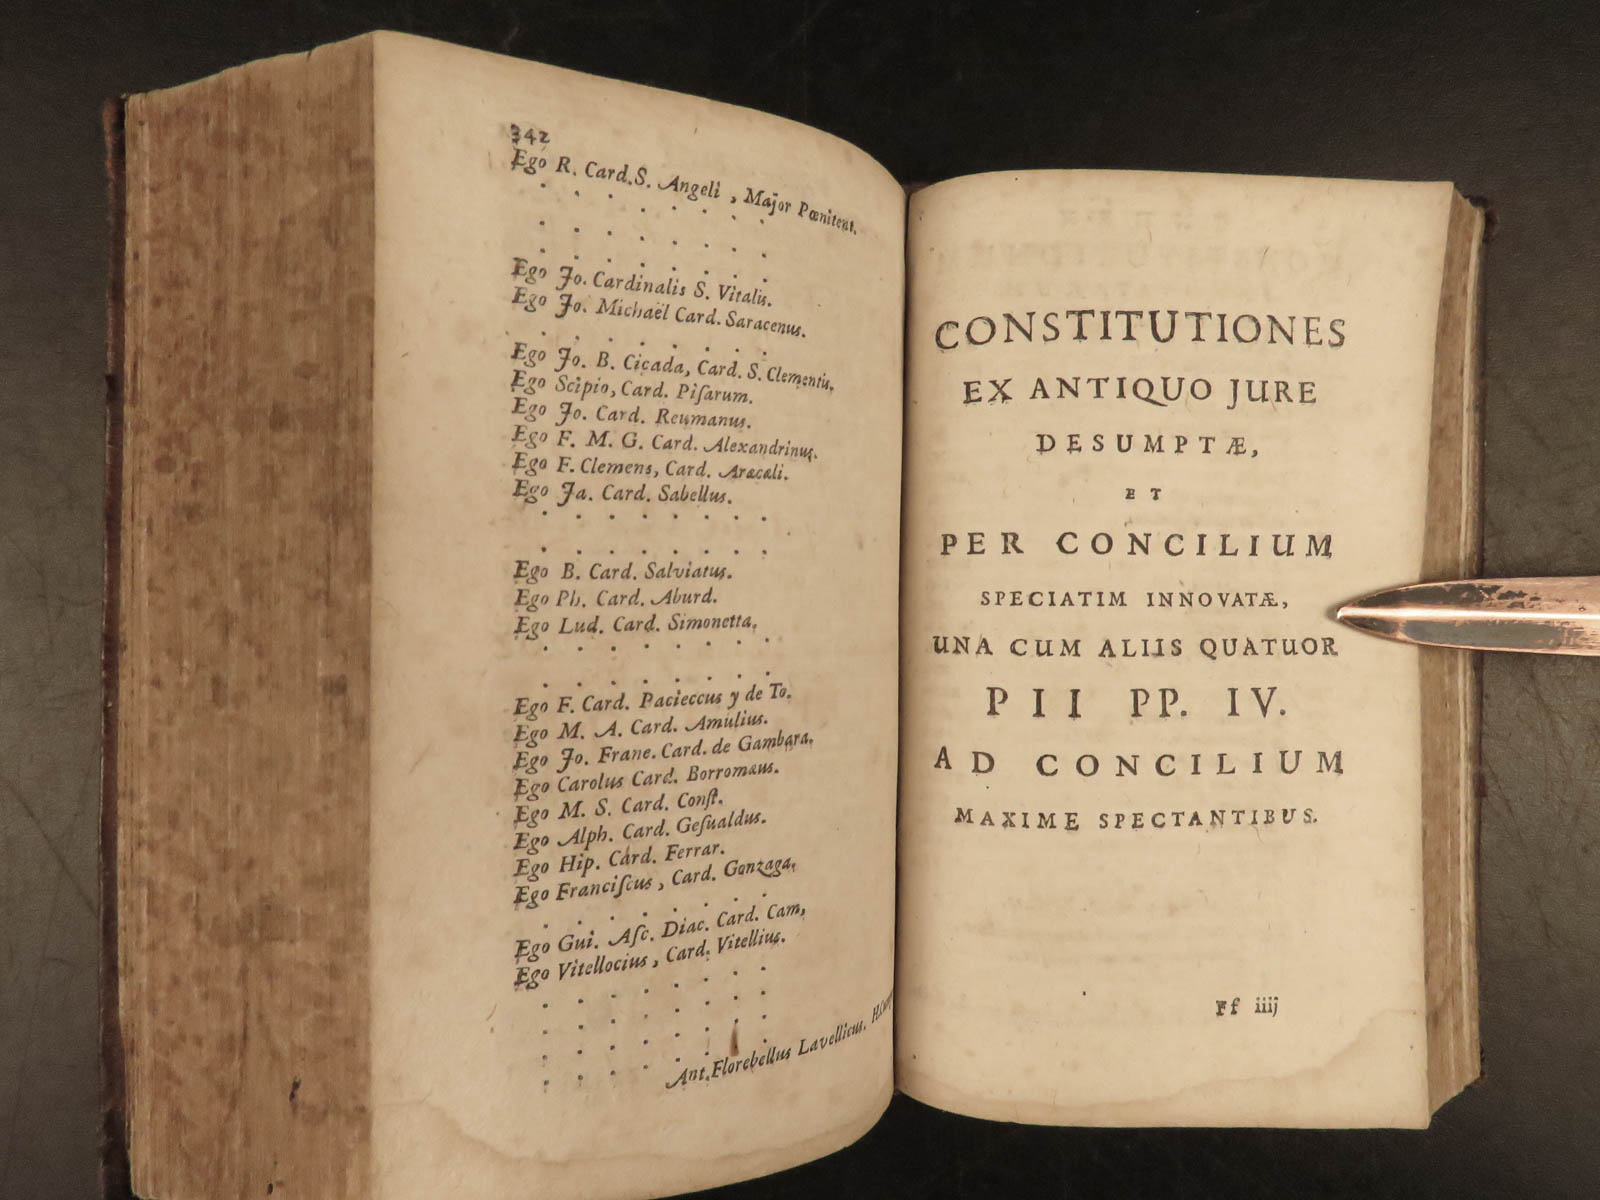 342
Ego R. Card. S. Angeli, Major Pœnitent.
Ego Jo. Cardinalis S. Vitalis.
Ego Jo. Michaël Card. Saracenus.
Ego Jo. B. Cicada, Card. S. Clementis.
Ego Scipio, Card. Piſarum.
Ego Jo. Card. Reumanus.
Ego F. M. G. Card. Alexandrinus.
Ego F. Clemens, Card. Aracæli.
Ego Ja. Card. Sabellus.
Ego B. Card. Salviatus.
Ego Ph. Card. Aburd.
Ego Lud. Card. Simonetta.
Ego F. Card. Pacieccus y de To.
Ego M. A. Card. Amulius.
Ego Jo. Franc. Card. de Gambara.
Ego Carolus Card. Borromæus.
Ego M. S. Card. Conſt.
Ego Alph. Card. Geſualdus.
Ego Hip. Card. Ferrar.
Ego Franciſcus, Card. Gonzaga.
Ego Gui. Aſc. Diac. Card. Cam.
Ego Vitellocius, Card. Vitellius.
Ant. Florebellus Lavellicus.
CONSTITUTIONES
EX ANTIQUO JURE
DESUMPTÆ,
ET
PER CONCILIUM
SPECIATIM INNOVATÆ,
UNA CUM ALIIS QUATUOR
PII PP. IV.
AD CONCILIUM
MAXIME SPECTANTIBUS.
Ff iiij